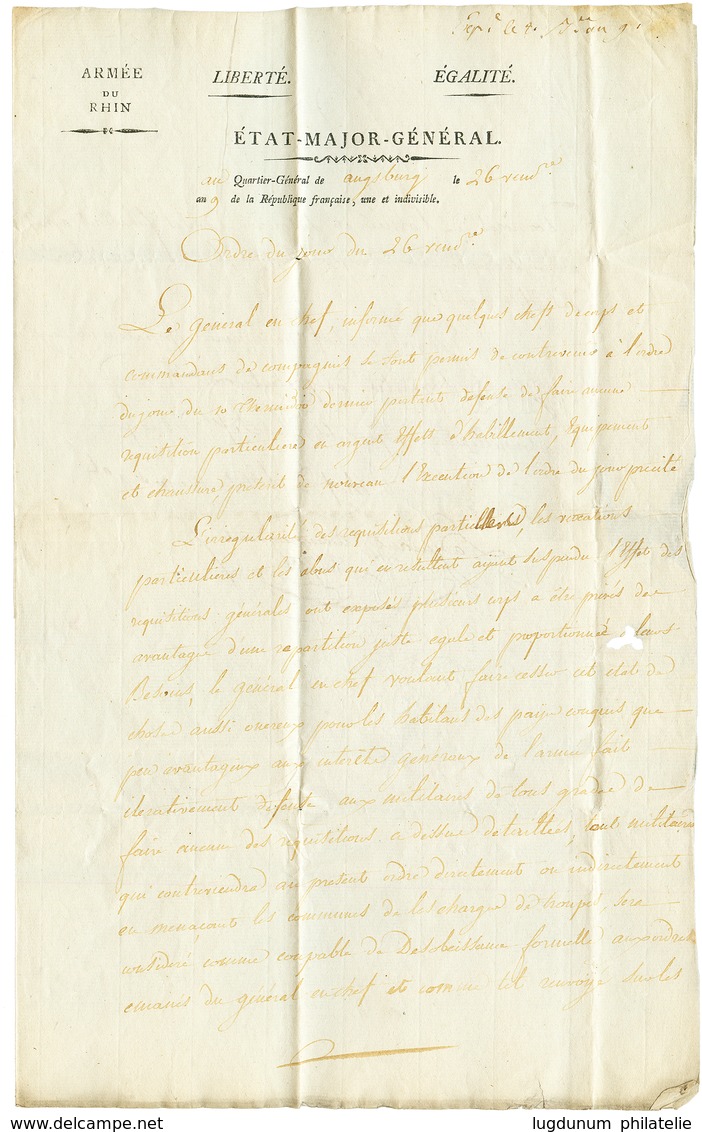 ARMÉE
DU
RHIN
LIBERTÉ.
ÉGALITÉ.
ÉTAT-MAJOR-GÉNÉRAL.
au Quartier-Général de augsburg le 26 vend.re
an 9 de la République française, une et indivisible.
Ordre du jour du 26 vend.re
Le général en chef, informé que quelques chefs de corps et
commandans de compagnies se sont permis de contrevenir à l'ordre
du jour du 10 dernier portant defense de faire aucune
requisition particuliere en argent Effets d'habillement, Equipement
et chaussure, de nouveau l'Execution de l'ordre du jour précité
L'irregularité des requisitions particulieres, les vexations
particulieres et les abus qui en resultent ayant suspendu l'Effet des
requisitions générales ont exposés plusieurs corps a être privés de
avantage d'une repartition juste egale et proportionnée a leurs
Besoins, le général en chef voulant faire cesser cet etat de
chose aussi onereux pour les habitans des pays conquis que
peu avantageux aux interêts generaux de l'armée fait
iterativement defense aux militaires de tous grades de
faire aucun des requisitions ci dessus detaillées, tout militaire
qui contreviendra au present ordre directement ou indirectement
en menaçant les communes de les charger de troupes, sera
consideré comme coupable de Desobeissance formelle aux ordres
emanés du général en chef et comme tel renvoyé sur les
lugdunum philatelie